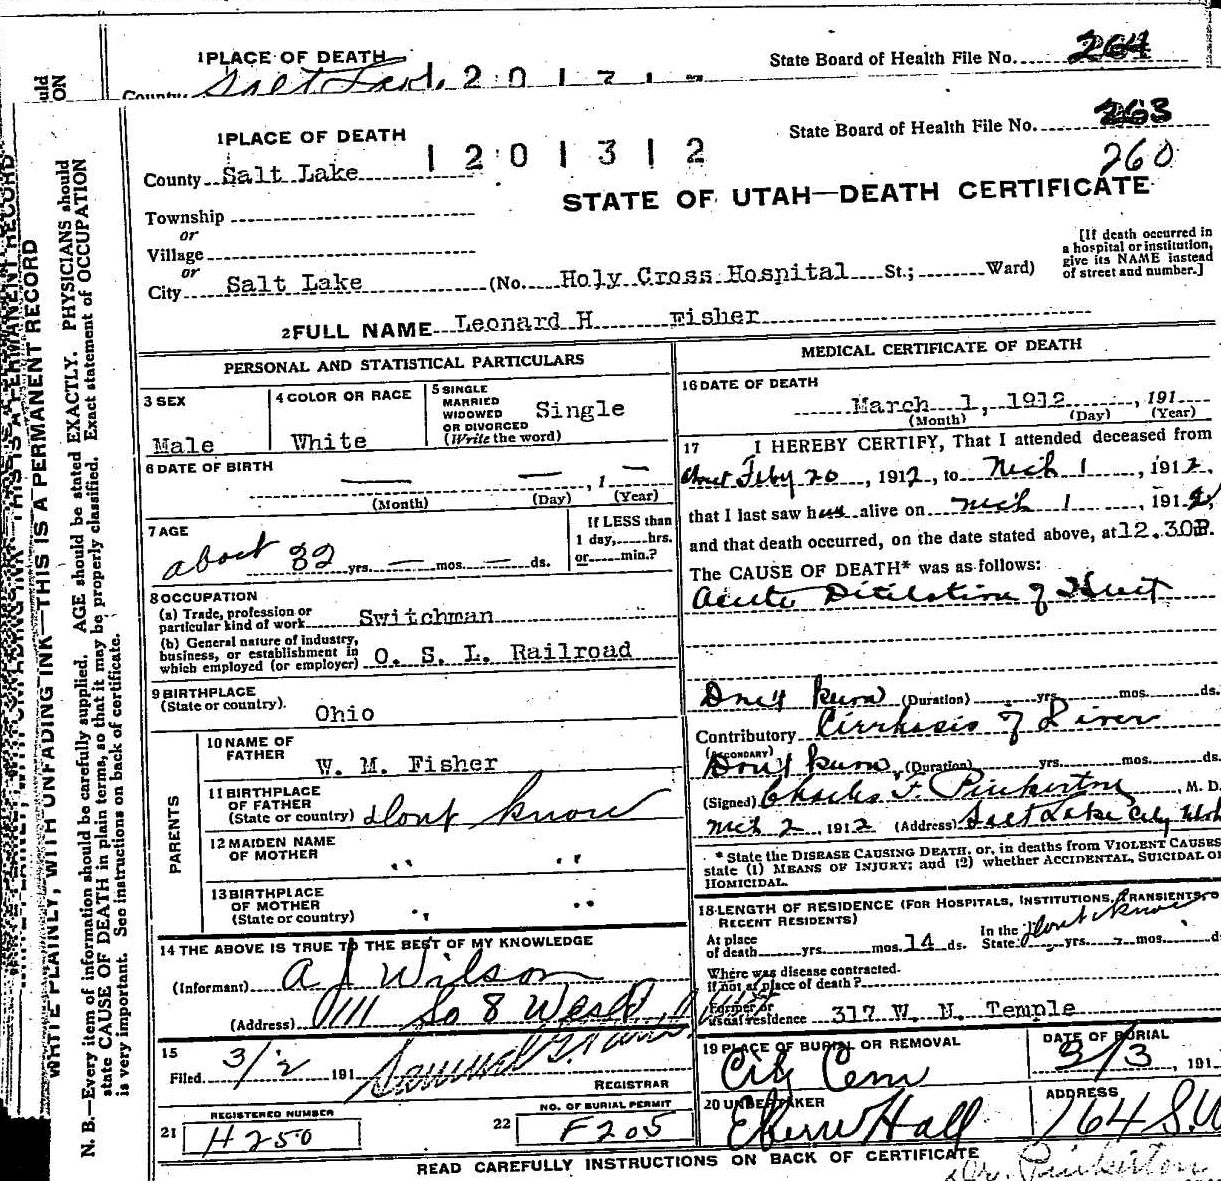 1 PLACE OF DEATH
State Board of Health File No. 264
County Salt Lake
1 PLACE OF DEATH
State Board of Health File No. 263
260
County Salt Lake
1201312
STATE OF UTAH—DEATH CERTIFICATE
Township
or
Village
or
City Salt Lake (No. Holy Cross Hospital St.; Ward)
[If death occurred in a hospital or institution, give its NAME instead of street and number.]
2 FULL NAME Leonard H Fisher
PERSONAL AND STATISTICAL PARTICULARS
3 SEX
Male
4 COLOR OR RACE
White
5 SINGLE
MARRIED
WIDOWED
OR DIVORCED
(Write the word)
Single
6 DATE OF BIRTH
— — , 1 —
(Month) (Day) (Year)
7 AGE
about 32 yrs. — mos. — ds.
If LESS than
1 day, hrs.
or min.?
8 OCCUPATION
(a) Trade, profession or
particular kind of work Switchman
(b) General nature of industry,
business, or establishment in
which employed (or employer) O. S. L. Railroad
9 BIRTHPLACE
(State or country).
Ohio
PARENTS
10 NAME OF
FATHER
W. M. Fisher
11 BIRTHPLACE
OF FATHER
(State or country) dont know
12 MAIDEN NAME
OF MOTHER " "
13 BIRTHPLACE
OF MOTHER
(State or country) " "
14 THE ABOVE IS TRUE TO THE BEST OF MY KNOWLEDGE
(Informant) A J Wilson
(Address) So 8 West
15
Filed 3/2 191
REGISTRAR
REGISTERED NUMBER
21 H250
NO. OF BURIAL PERMIT
22 F205
MEDICAL CERTIFICATE OF DEATH
16 DATE OF DEATH
March 1, 1912 , 191
(Month) (Day) (Year)
17 I HEREBY CERTIFY, That I attended deceased from
about Feby 20, 1912, to Mch 1, 1912,
that I last saw him alive on Mch 1, 1912,
and that death occurred, on the date stated above, at 12.30P.
The CAUSE OF DEATH* was as follows:
Acute Ditilation of Heart
Don't know (Duration) yrs. mos. ds.
Contributory Cirrhosis of Liver
(SECONDARY)
Don't know (Duration) yrs. mos. ds.
(Signed) Charles F. Pinkerton, M. D.
Mch 2, 1912 (Address) Salt Lake City Utah
* State the DISEASE CAUSING DEATH, or, in deaths from VIOLENT CAUSES
state (1) MEANS OF INJURY; and (2) whether ACCIDENTAL, SUICIDAL OR
HOMICIDAL.
18 LENGTH OF RESIDENCE (FOR HOSPITALS, INSTITUTIONS, TRANSIENTS, O
RECENT RESIDENTS)
At place
of death yrs. mos. 14 ds.
In the
State dont know yrs. mos. d
Where was disease contracted.
if not at place of death?
Former or
usual residence 317 W. N. Temple
19 PLACE OF BURIAL OR REMOVAL
City Cem
DATE OF BURIAL
3/3, 191
20 UNDERTAKER
Eber W Hall
ADDRESS
764 S.W
READ CAREFULLY INSTRUCTIONS ON BACK OF CERTIFICATE
Dr. Pinkerton
WRITE PLAINLY, WITH UNFADING INK—THIS IS A PERMANENT RECORD
N. B.—Every item of information should be carefully supplied. AGE should be stated EXACTLY. PHYSICIANS should
state CAUSE OF DEATH in plain terms, so that it may be properly classified. Exact statement of OCCUPATION
is very important. See instructions on back of certificate.